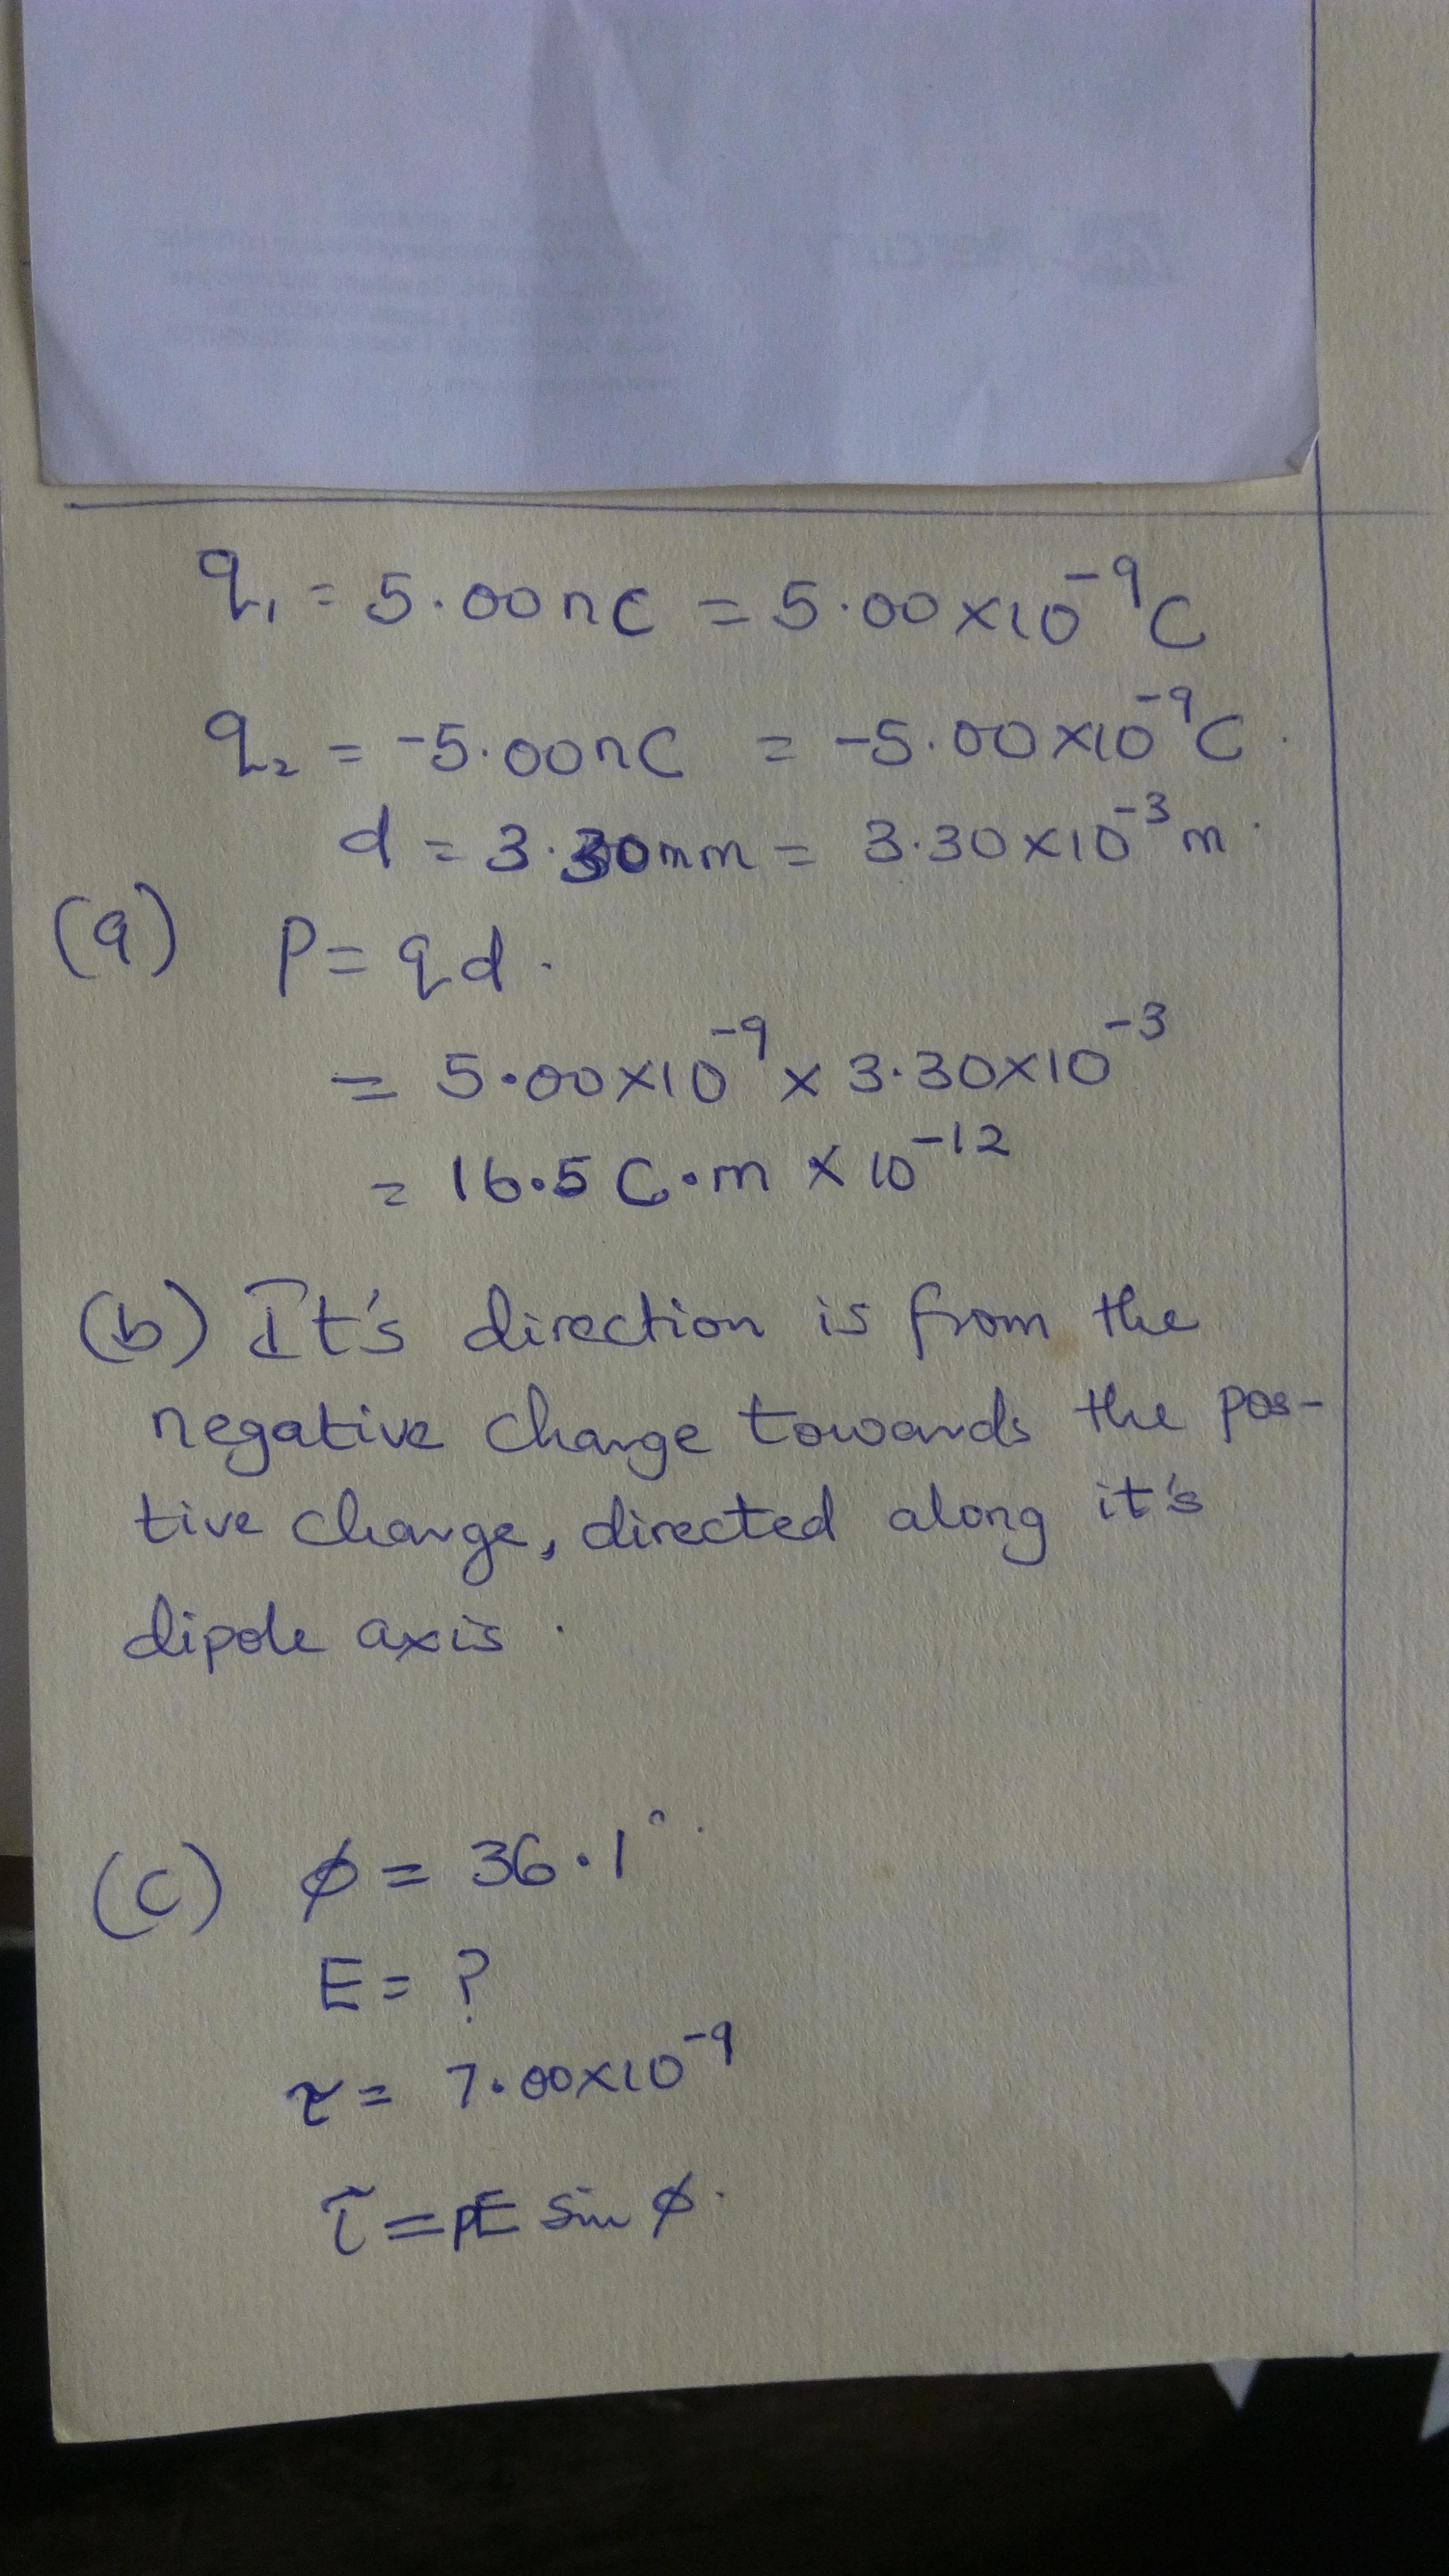 q₁ = 5.00nC = 5.00×10⁻⁹C
q₂ = -5.00nC = -5.00×10⁻⁹C.
d = 3.30mm = 3.30×10⁻³m.
(a) P = qd.
= 5.00×10⁻⁹ × 3.30×10⁻³
= 16.5 C·m × 10⁻¹²
(b) It's direction is from the
negative charge towards the pos-
tive charge, directed along it's
dipole axis.
(c) φ = 36.1°.
E = ?
τ = 7.00×10⁻⁹
τ = pE sin φ.